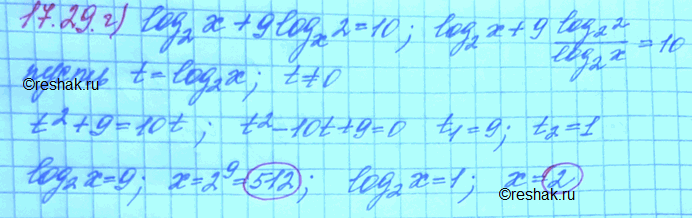 17.29.г) log₂ x + 9 logₓ 2 = 10; log₂ x + 9 log₂ 2 / log₂ x = 10
пусть t = log₂ x; t ≠ 0
©reshak.ru ©reshak.ru
t² + 9 = 10t; t² - 10t + 9 = 0 t₁ = 9; t₂ = 1
log₂ x = 9; x = 2⁹ = 512; log₂ x = 1; x = 2
©reshak.ru ©reshak.ru